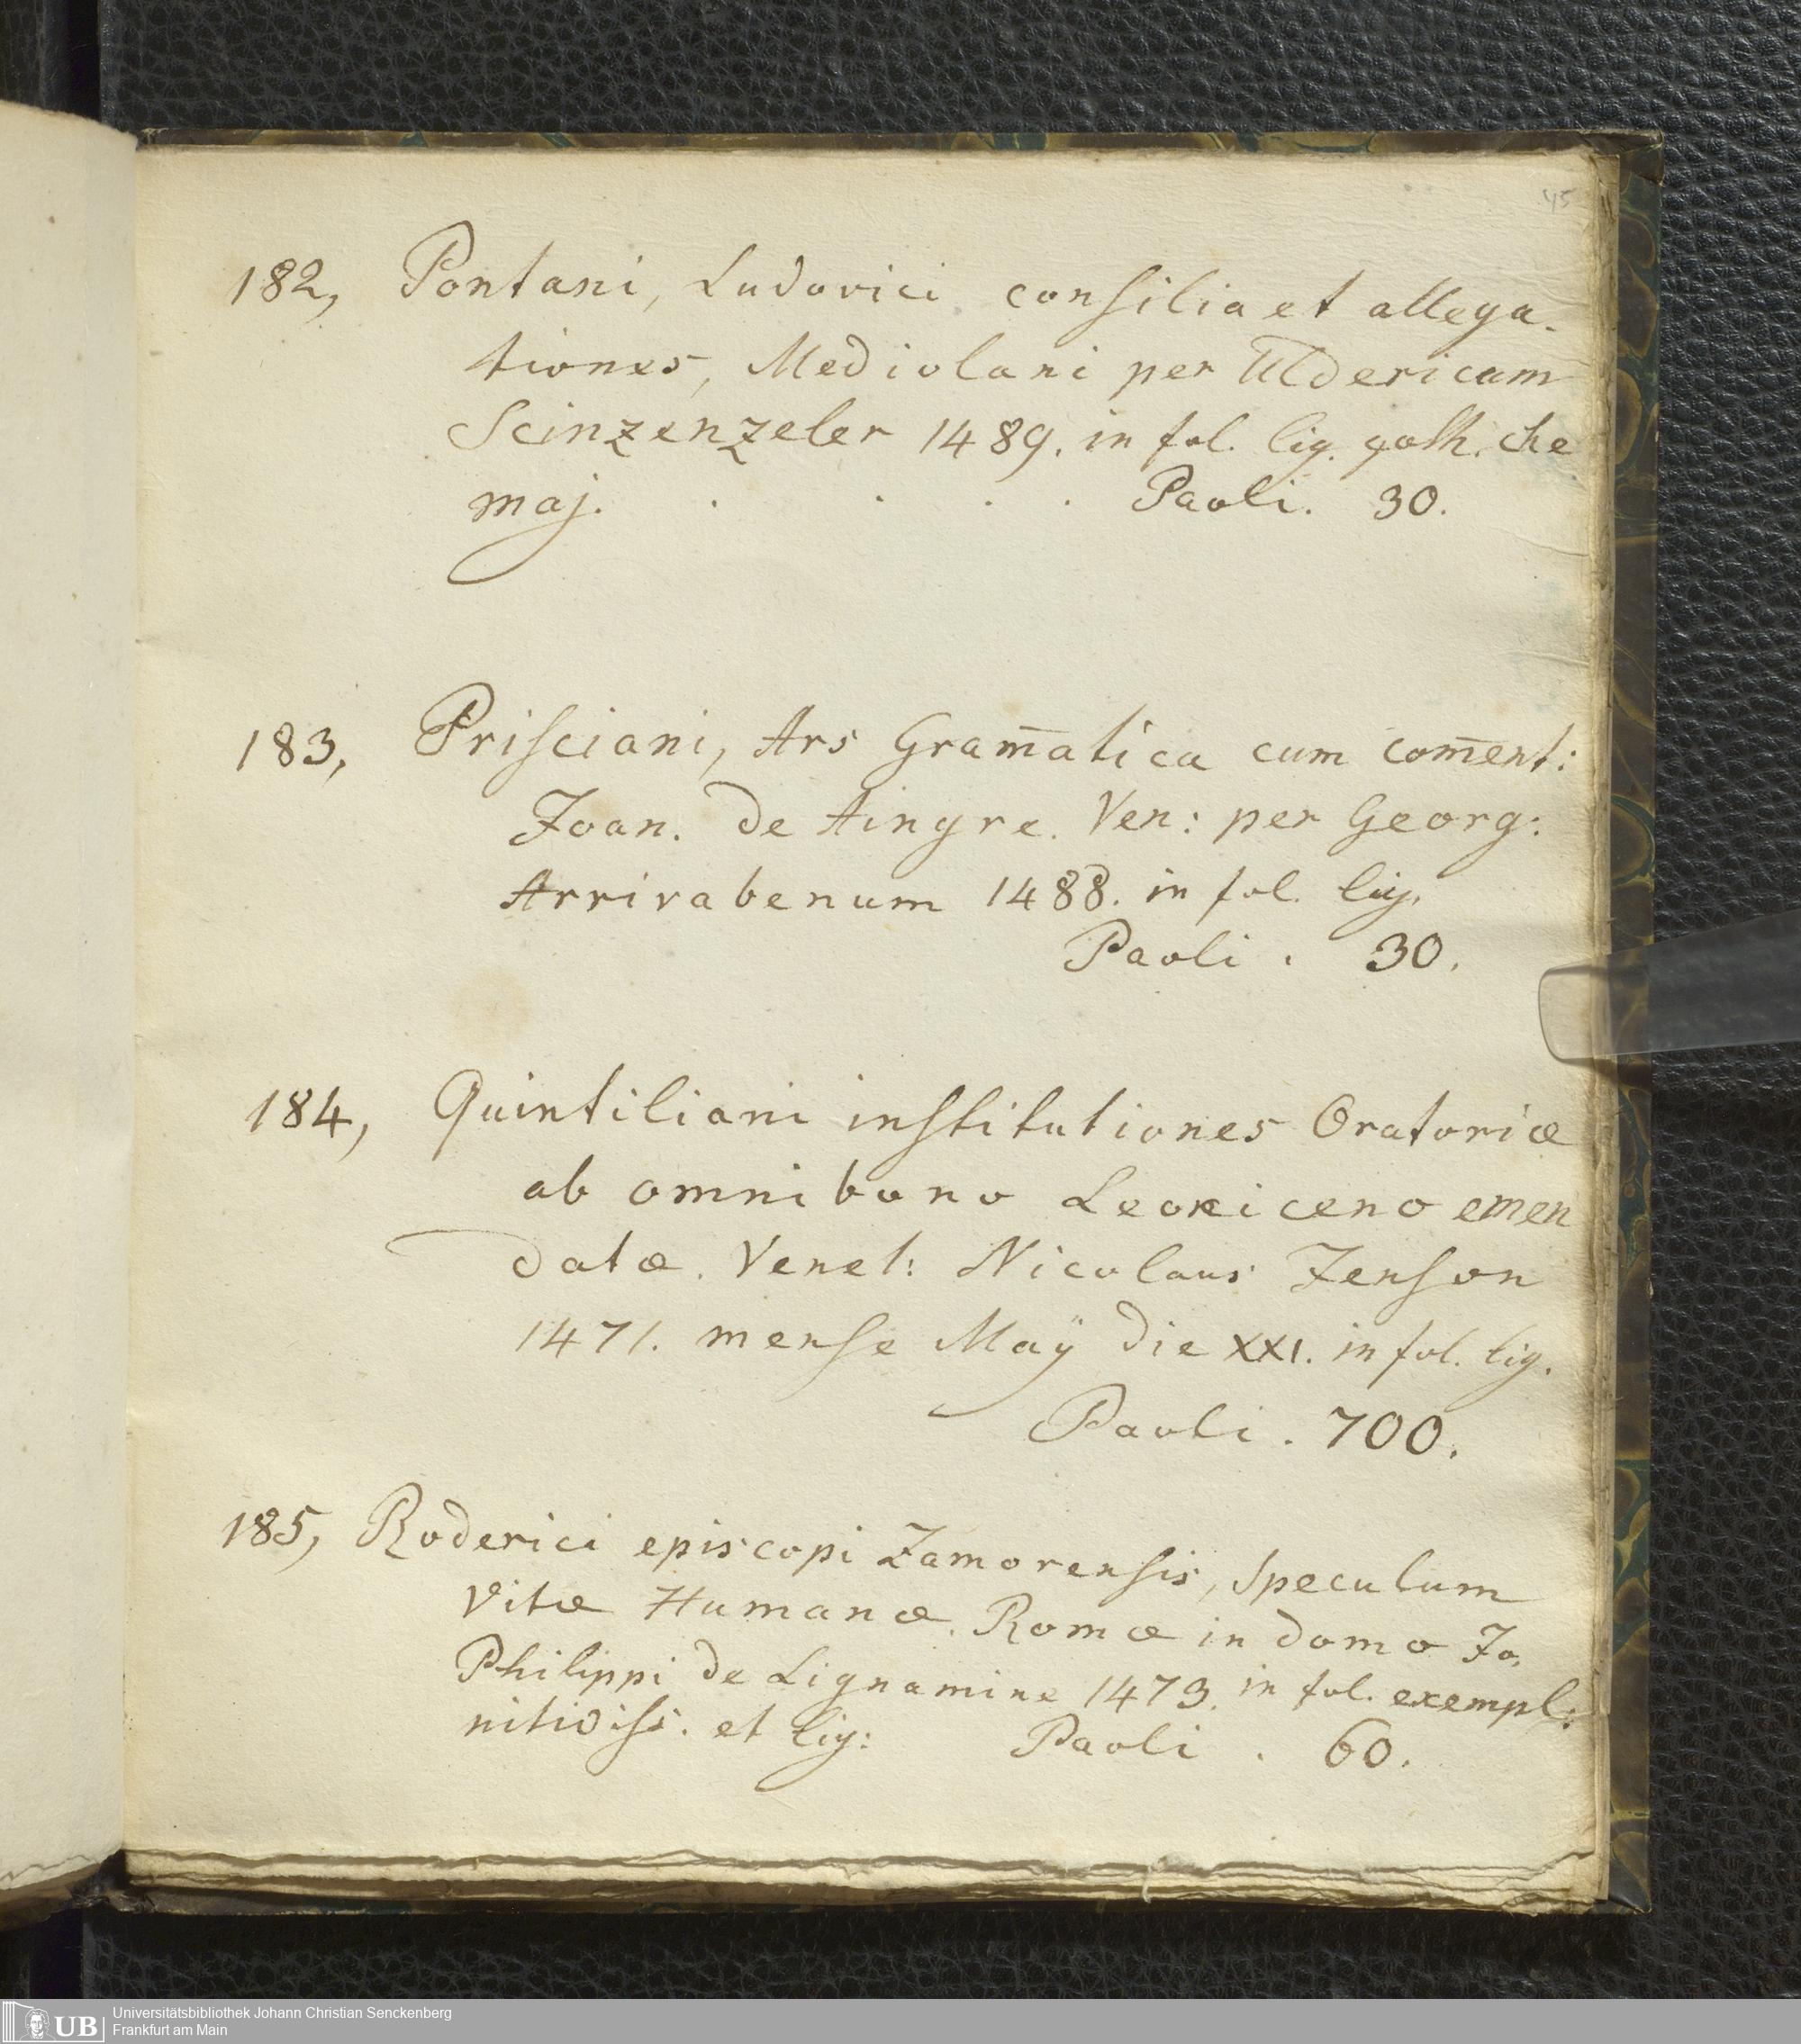 45
182, Pontani, Ludovici consilia et allega-
tiones, Mediolani per Uldericum
Scinzenzeler 1489. in fol. lig. goth. che
maj. . . . . Paoli. 30.
183, Prisciani, Ars Gram̄atica cum com̄ent:
Joan. de Aingre. Ven: per Georg:
Arrivabenum 1488. in fol. lig.
Paoli . 30.
184, Quintiliani institutiones Oratoriæ
ab omnibono Leoniceno emen
datæ. Venet: Nicolaus Jenson
1471. mense Maÿ die XXI. in fol. lig.
Paoli . 700.
185, Roderici episcopi Zamorensis, Speculum
Vitæ Humanæ. Romæ in domo Jo.
Philippi de Lignamine 1473. in fol. exempl:
nitidiss. et lig: Paoli . 60.
UB Universitätsbibliothek Johann Christian Senckenberg
Frankfurt am Main